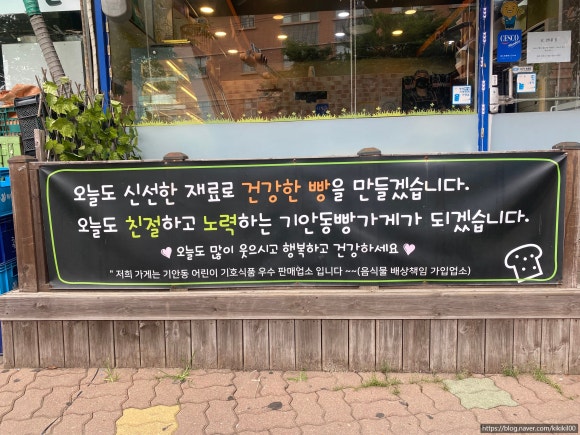 CESCO
오늘도 신선한 재료로 건강한 빵을 만들겠습니다.
오늘도 친절하고 노력하는 기안동빵가게가 되겠습니다.
오늘도 많이 웃으시고 행복하고 건강하세요
" 저희 가게는 기안동 어린이 기호식품 우수 판매업소 입니다 ~~(음식물 배상책임 가입업소)
https://blog.naver.com/kikiki00